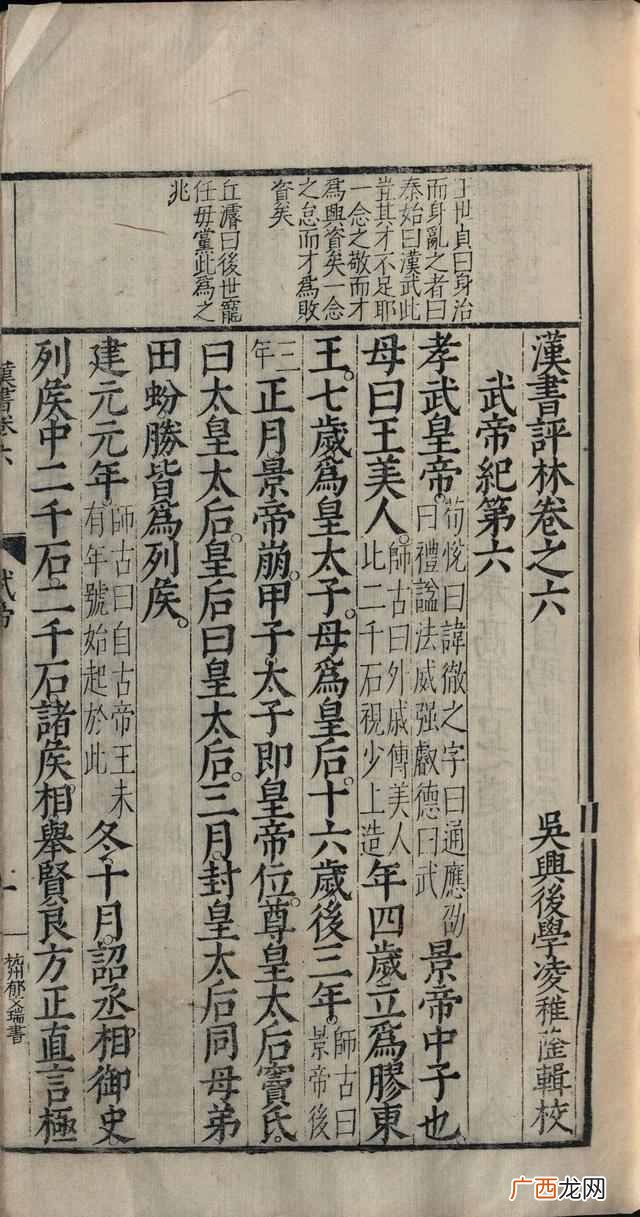 王世貞曰身治
而身亂之者曰
秦始曰漢武此
豈其才不足耶
一念之敬而才
爲興資矣一念
之怠而才爲敗
資矣
丘濬曰後世寵
任毋黨此爲之
兆
漢書評林卷之六
吳興後學凌稚隆輯校
武帝紀第六
孝武皇帝。荀悅曰諱徹之字曰通應劭曰禮諡法威强叡德曰武景帝中子也
母曰王美人。師古曰外戚傳美人此二千石視少上造年四歲立爲膠東
王。七歲爲皇太子。母爲皇后。十六歲後三年。師古曰景帝後
三年正月景帝崩。甲子太子即皇帝位。尊皇太后竇氏。
曰太皇太后。皇后曰皇太后。三月封皇太后同母弟
田蚡勝皆爲列矦。
建元元年。師古曰自古帝王未有年號始起於此冬十月。詔丞相御史
列矦中二千石二千石諸矦相舉賢良方正直言極
漢書卷六
武帝
一
杭州郁文瑞書
广西龙网